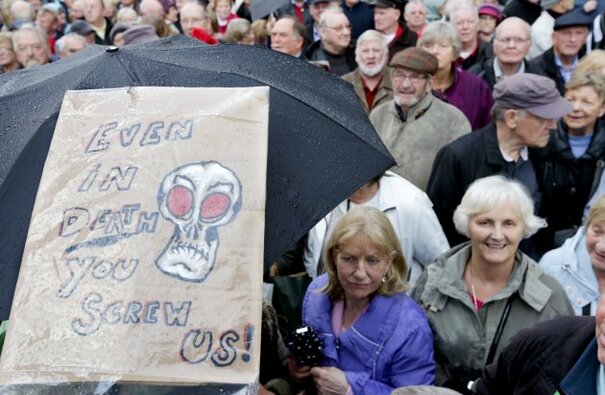 EVEN
IN
DEATH
YOU
SCREW
US!